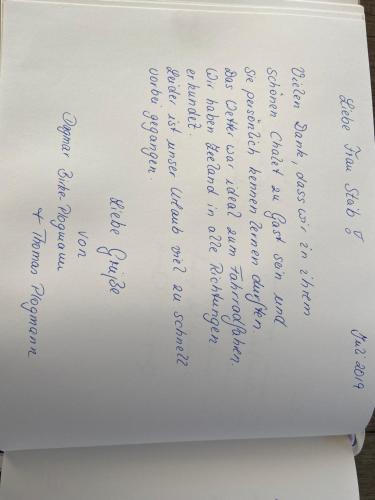 Juli 2019
Liebe Frau Stab !
Vielen Dank, dass wir in ihrem
schönen Chalet zu Gast sein und
Sie persönlich kennen lernen durften.
Das Wetter war ideal zum Fahrradfahren.
Wir haben Zeeland in alle Richtungen
erkundet.
Leider ist unser Urlaub viel zu schnell
vorbei gegangen.
Liebe Grüße
von
Dagmar Birke-Plogmann
+ Thomas Plogmann